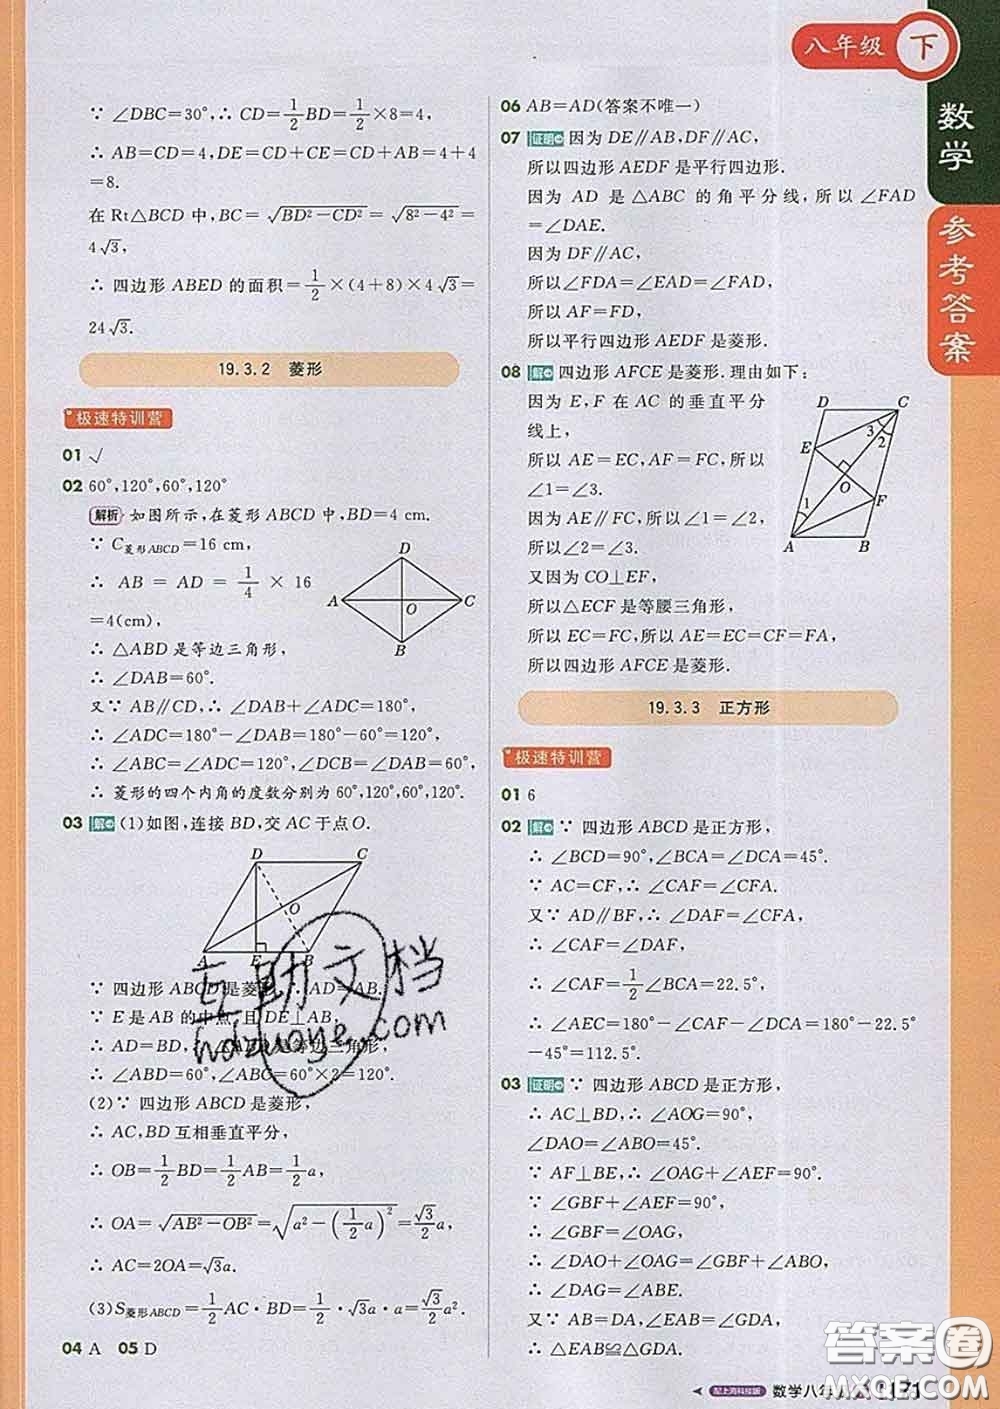 八年级 下
数学
参考答案
∵ ∠DBC=30°,∴ CD=1/2BD=1/2×8=4,
∴ AB=CD=4,DE=CD+CE=CD+AB=4+4
=8.
在 Rt△BCD 中,BC=√(BD²-CD²)=√(8²-4²)=
4√3,
∴ 四边形 ABED 的面积=1/2×(4+8)×4√3=
24√3.
19.3.2 菱形
极速特训营
01 √
02 60°,120°,60°,120°
解析 如图所示,在菱形 ABCD 中,BD=4 cm.
∵ C菱形ABCD=16 cm,
∴ AB = AD = 1/4 × 16
=4(cm),
∴ △ABD 是等边三角形,
∴ ∠DAB=60°.
又∵ AB∥CD,∴ ∠DAB+∠ADC=180°,
∴ ∠ADC=180°-∠DAB=180°-60°=120°,
∴ ∠ABC=∠ADC=120°,∠DCB=∠DAB=60°,
∴ 菱形的四个内角的度数分别为 60°,120°,60°,120°.
D
A
O
C
B
03 解 (1)如图,连接 BD,交 AC 于点 O.
D
C
O
A
E
B
∵ 四边形 ABCD 是菱形,∴ AD=AB.
∵ E 是 AB 的中点,且 DE⊥AB,
∴ AD=BD,∴ △ABD 是等边三角形,
∴ ∠ABD=60°,∠ABC=60°×2=120°.
(2)∵ 四边形 ABCD 是菱形,
∴ AC,BD 互相垂直平分,
∴ OB=1/2BD=1/2AB=1/2a,
∴ OA=√(AB²-OB²)=√(a²-(1/2a)²)=√3/2a,
∴ AC=2OA=√3a.
(3)S菱形ABCD=1/2AC·BD=1/2·√3a·a=√3/2a².
04 A 05 D
06 AB=AD(答案不唯一)
07 证明 因为 DE∥AB,DF∥AC,
所以四边形 AEDF 是平行四边形.
因为 AD 是 △ABC 的角平分线,所以 ∠FAD
=∠DAE.
因为 DF∥AC,
所以∠FDA=∠EAD=∠FAD,
所以 AF=FD,
所以平行四边形 AEDF 是菱形.
08 解 四边形 AFCE 是菱形.理由如下:
因为 E,F 在 AC 的垂直平分
线上,
所以 AE=EC,AF=FC,所以
∠1=∠3.
因为 AE∥FC,所以∠1=∠2,
所以∠2=∠3.
又因为 CO⊥EF,
所以△ECF 是等腰三角形,
所以 EC=FC,所以 AE=EC=CF=FA,
所以四边形 AFCE 是菱形.
D
C
3
2
E
O
F
1
A
B
19.3.3 正方形
极速特训营
01 6
02 解 ∵ 四边形 ABCD 是正方形,
∴ ∠BCD=90°,∠BCA=∠DCA=45°.
∵ AC=CF,∴ ∠CAF=∠CFA.
又∵ AD∥BF,∴ ∠DAF=∠CFA,
∴ ∠CAF=∠DAF,
∴ ∠CAF=1/2∠BCA=22.5°,
∴ ∠AEC=180°-∠CAF-∠DCA=180°-22.5°
-45°=112.5°.
03 证明 ∵ 四边形 ABCD 是正方形,
∴ AC⊥BD,∴ ∠AOG=90°,
∠DAO=∠ABO=45°.
∵ AF⊥BE,∴ ∠OAG+∠AEF=90°.
∵ ∠GBF+∠AEF=90°,
∴ ∠GBF=∠OAG,
∴ ∠DAO+∠OAG=∠GBF+∠ABO,
∴ ∠DAG=∠ABE.
又∵ AB=DA,∠EAB=∠GDA,
∴ △EAB≌△GDA.
互助文档
hdzuoye.com
配上海科技版 数学八年 171
答案圈
MXQE.COM